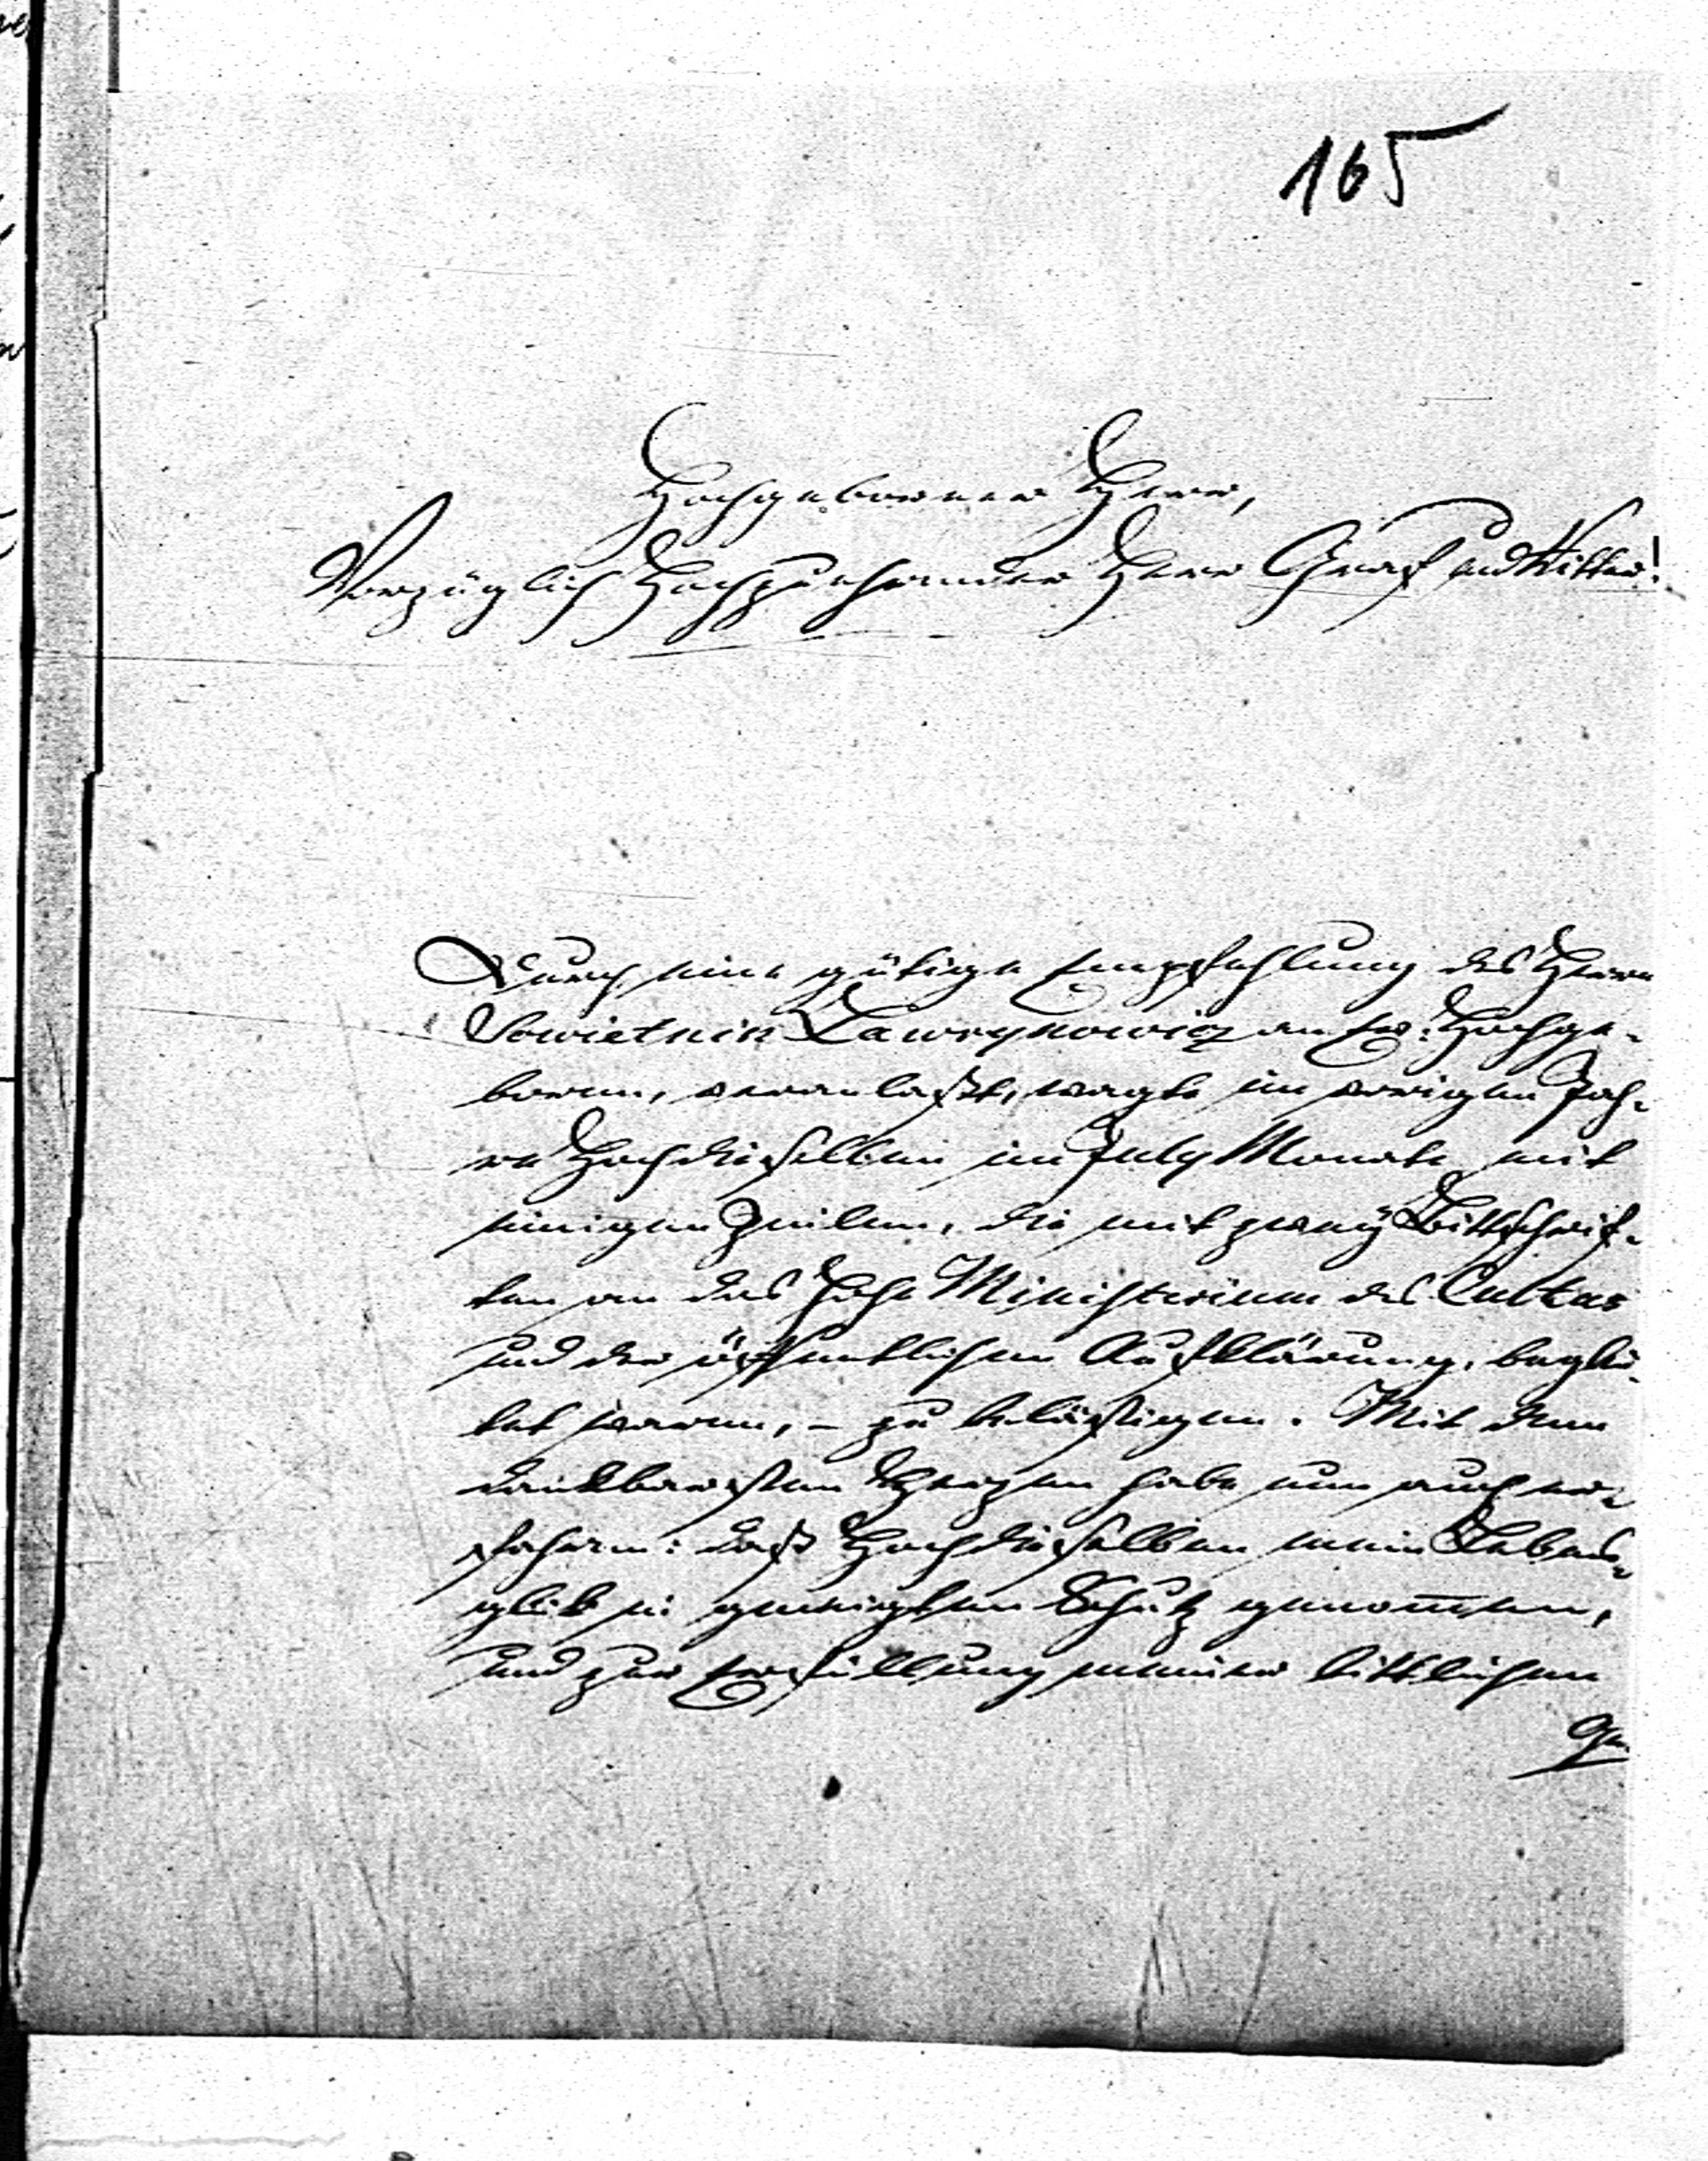 165
Hochgeborner Herr,
Vorzüglich Hochzuehrender Herr Graf und Ritter!
Durch eine gütige Empfehlung des Herrn
Sowietnik Lawrynowicz an Ew: Hochge-
boren, veranlaßt, wagte im vorigen Jah-
re Hochdieselben im July Monate mit
einigen Zeilen, die mit zweÿ Bittschrif-
ten an das Hohe Ministerium des Cultus
und der öffentlichen Aufklärung, beglei-
tet waren, – zu belästigen. Mit dem
dankbarsten Herzen habe nun auch er-
fahren: daß Hochdieselben mein Lebens-
glük in geneigten Schutz genom̅en,
und zur Erfüllung meiner bittlichen
Ge-